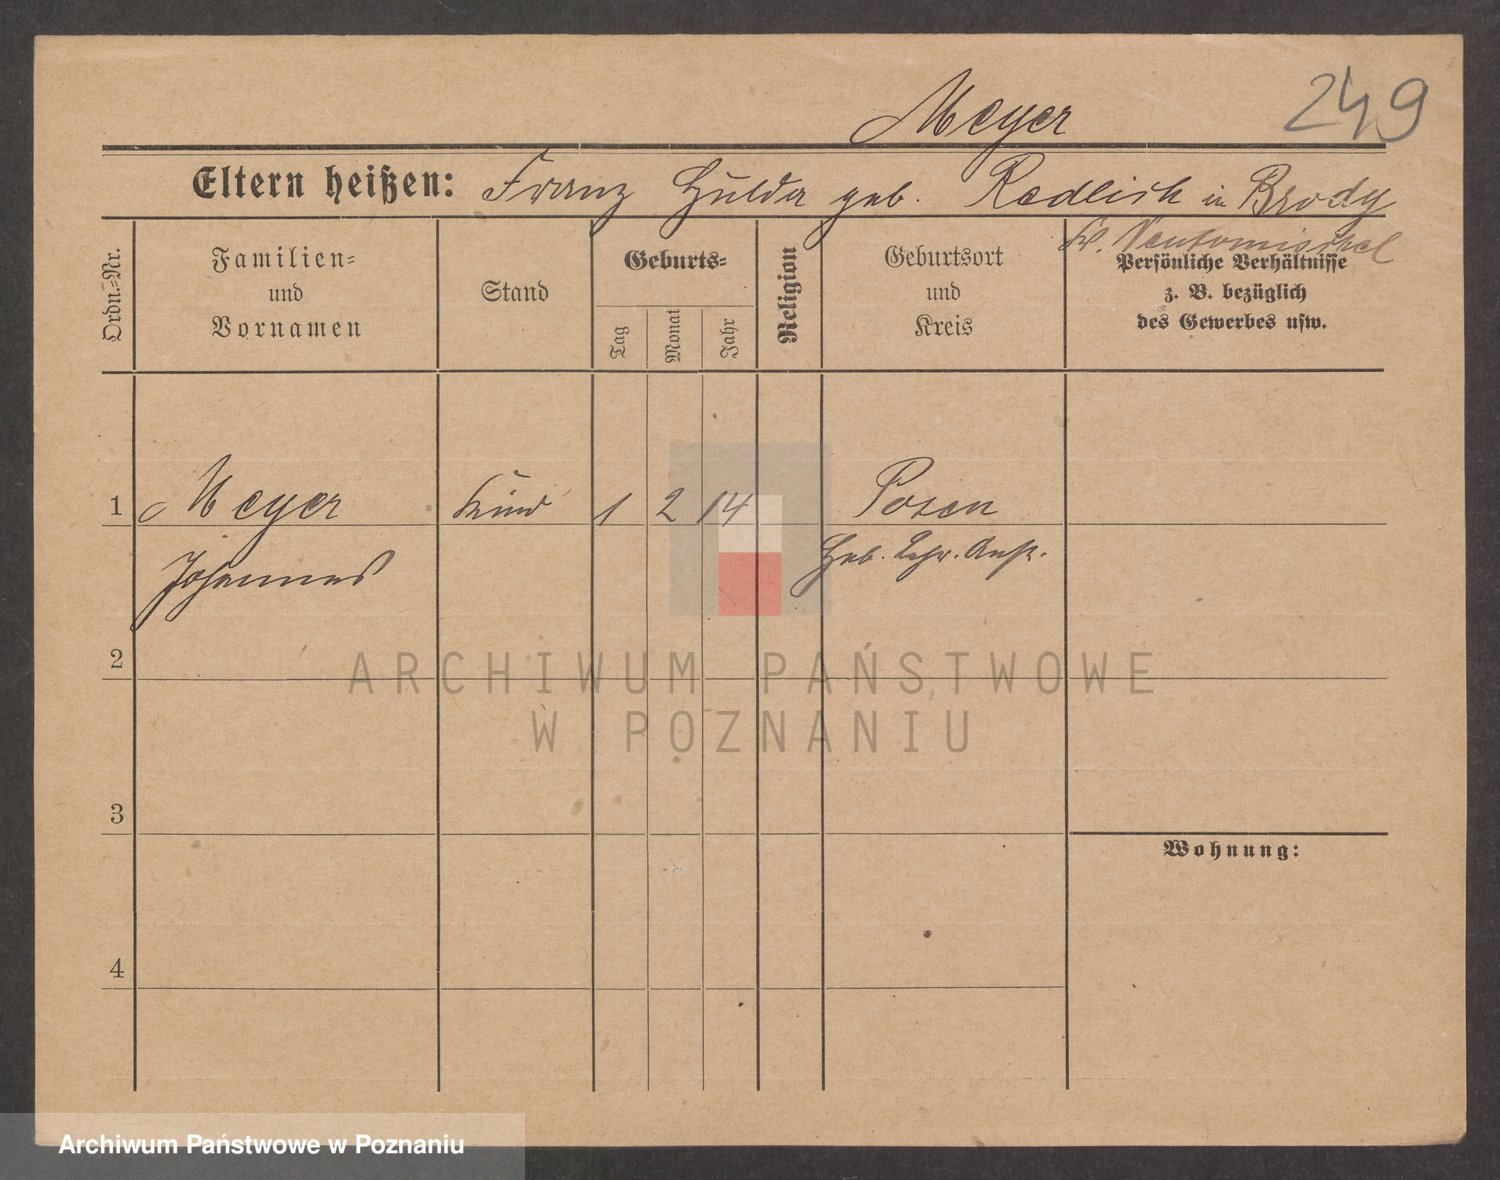 Meyer
249
Eltern heißen: Franz Hulda geb. Radlich in Brody
Kr. Neutomischel
Ordn.-Nr.
Familien-
und
Vornamen
Stand
Geburts-
Tag
Monat
Jahr
Religion
Geburtsort
und
Kreis
Persönliche Verhältnisse
z. B. bezüglich
des Gewerbes usw.
1 Meyer Kind 1 2 14 Posen
Johannes Heb. Lehr. Anst.
2
3
4
Wohnung:
ARCHIWUM PAŃSTWOWE
W POZNANIU
Archiwum Państwowe w Poznaniu